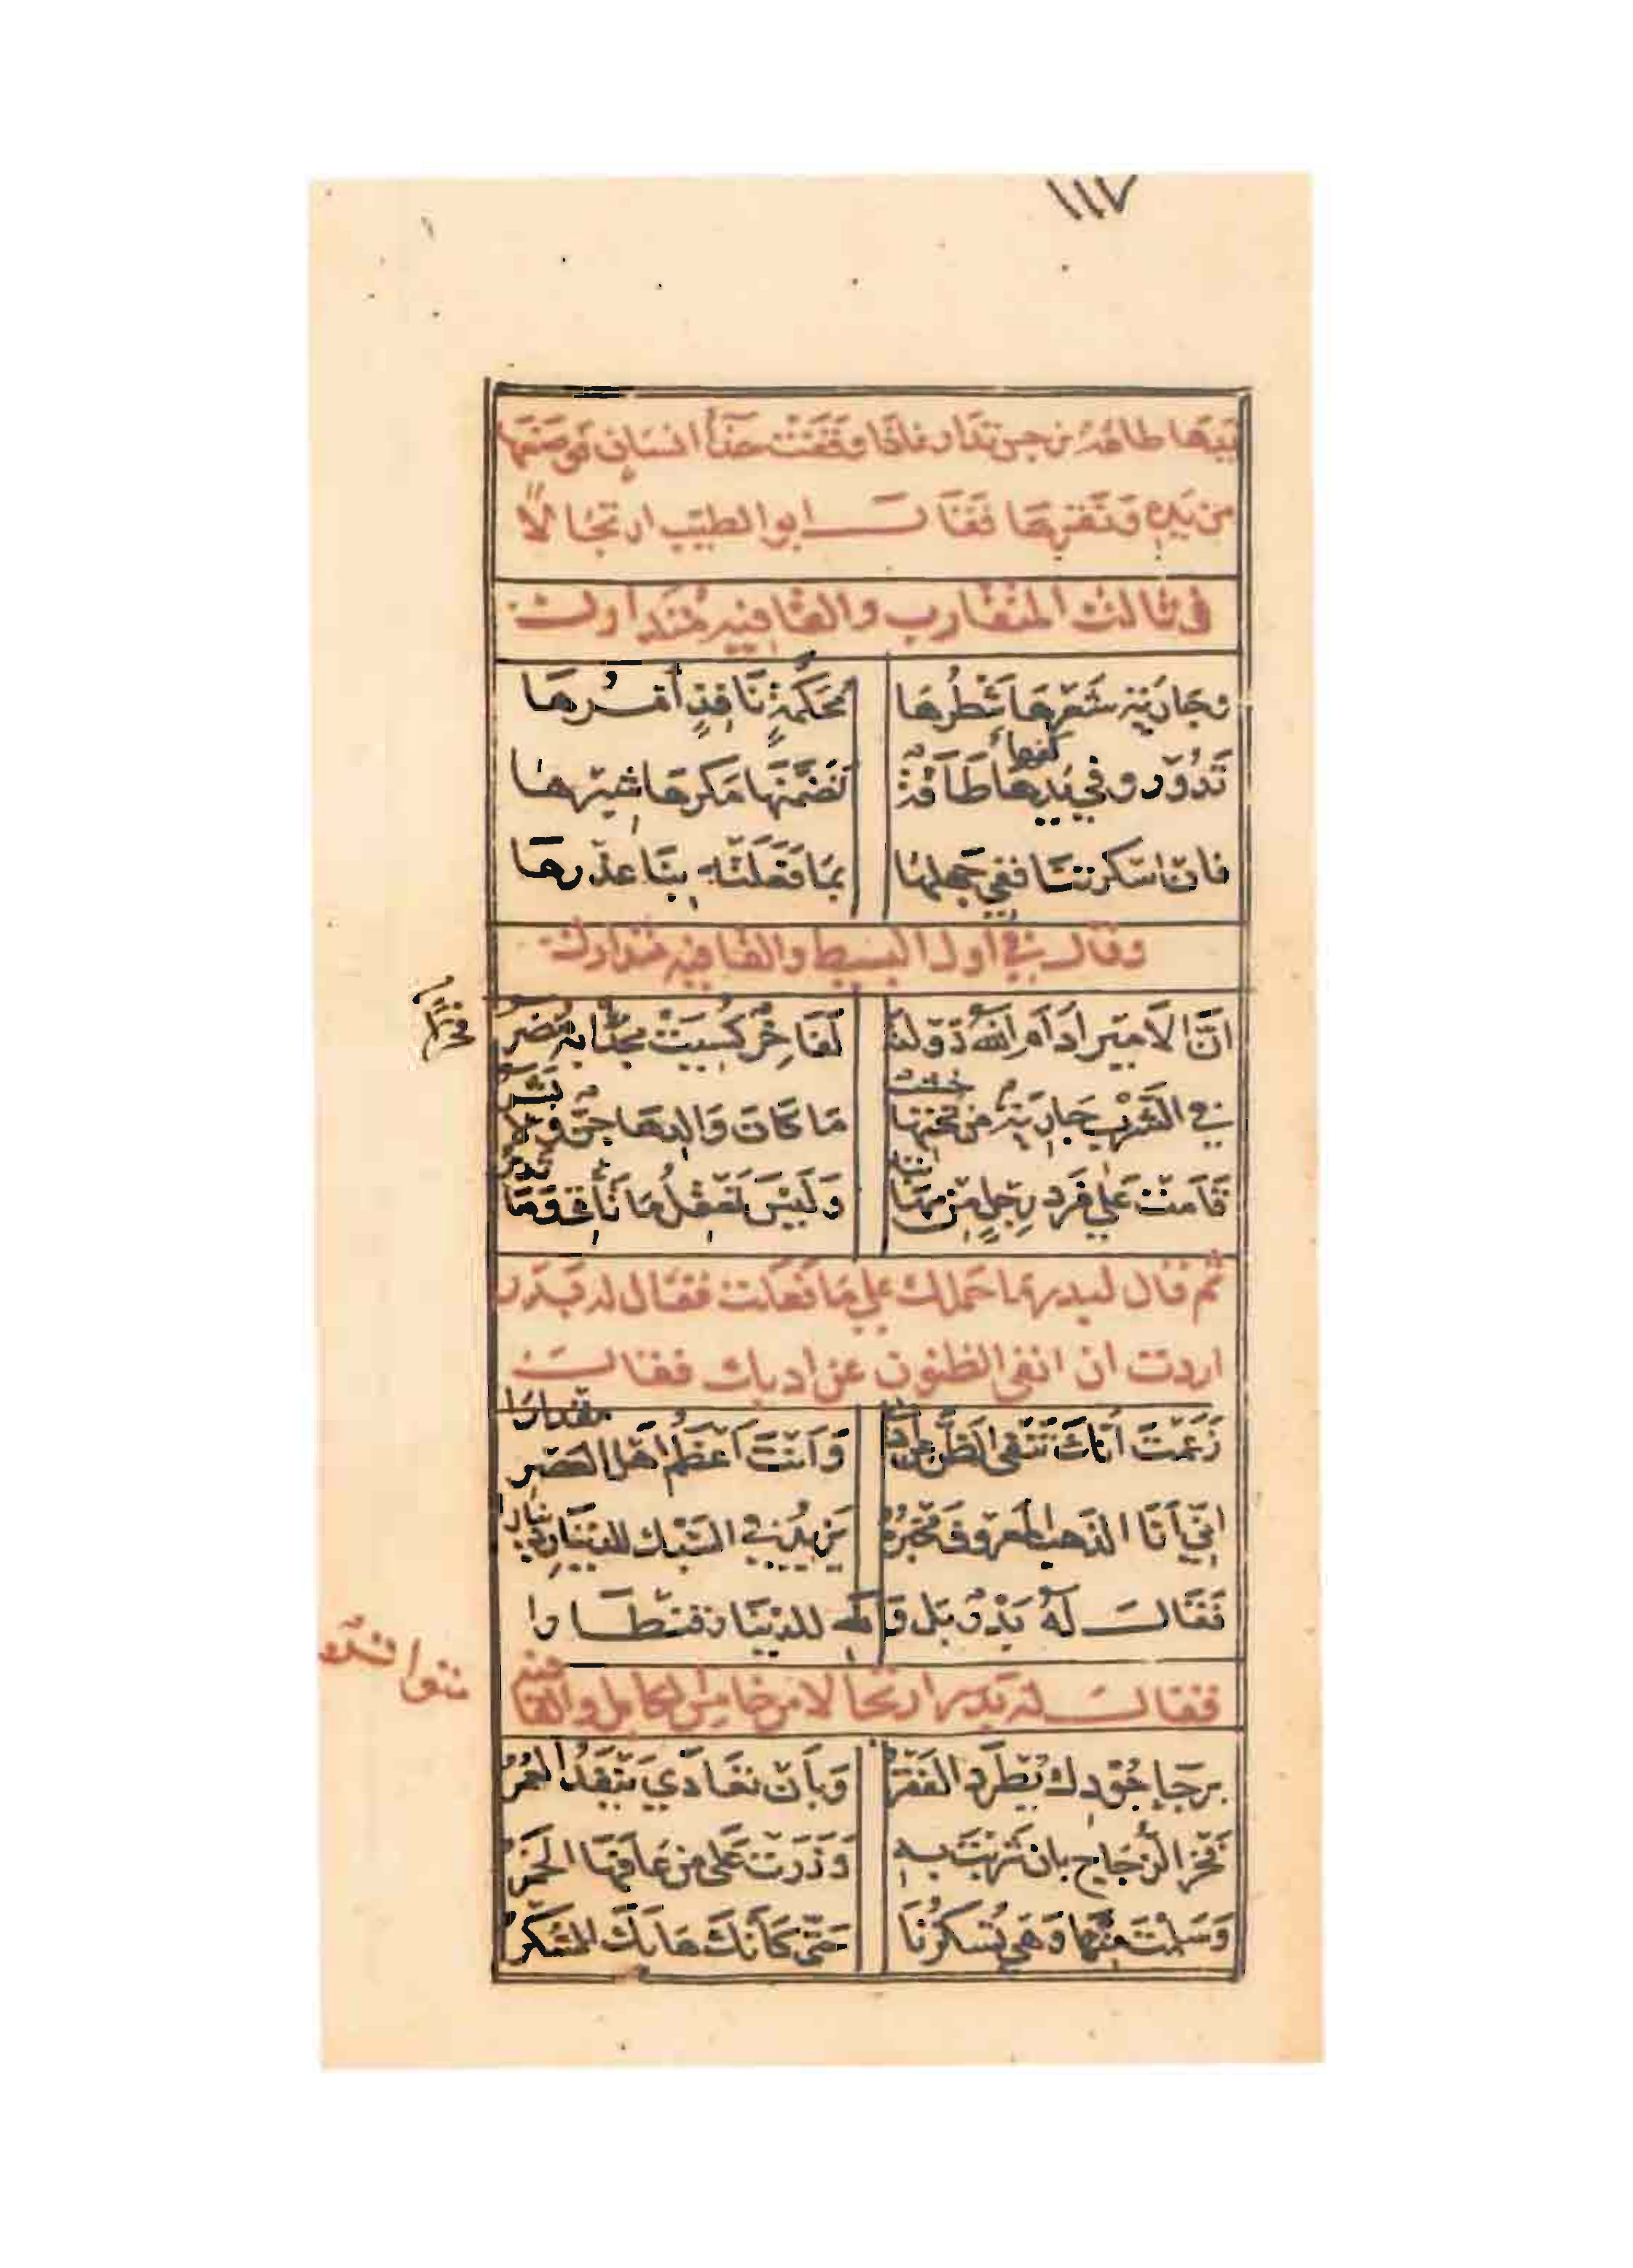 ١١٧
بيدها طاقة من جس تدار فاذا وقفت حذا انسان نقرها
من يده ونقرها فقال ابو الطيب ارتجالا
في ثالث المتقارب والقافية متدارك
وجارية شعرها شطرها محكمة نافذ امرها
تدور وفي يدها طاقة تضمنها مكرها شبرها
كفها
فان اسكرتنا ففي جهلها بما فعلته بنا عذرها
وقال في اول البسيط والقافية متدارك
ان الامير ادام الله دولته لفاخر كسيت مجدا به مضر
فخرا
في الشرب جارية من تحتها خشب ما كان والدها جن ولا بشر
قامت على فرد رجل من مهابته وليس تعقل ما تأتي وما تذر
ثم قال لبدر ما حملك على ما فعلت فقال له بدر
اردت ان انفي الظنون عن ادبك فقال
زعمت انك تنفي الظن عن ادبي وانت اعظم اهل العصر مقدارا
اني انا الذهب المعروف مخبره يزيد في السبك للدينار دينارا
فقال له بدر بل والله للدينار قنطارا
فقال له بدر ارتجالا من خامس الكامل والقافية
متواتر
برجاء جودك يطرد الفقر وبان تعادي ينفد العمر
فخر الزجاج بان شربت به وزرت على من عافها الخمر
وسلمت منها وهي تسكرنا حتى كانك هابك السكر